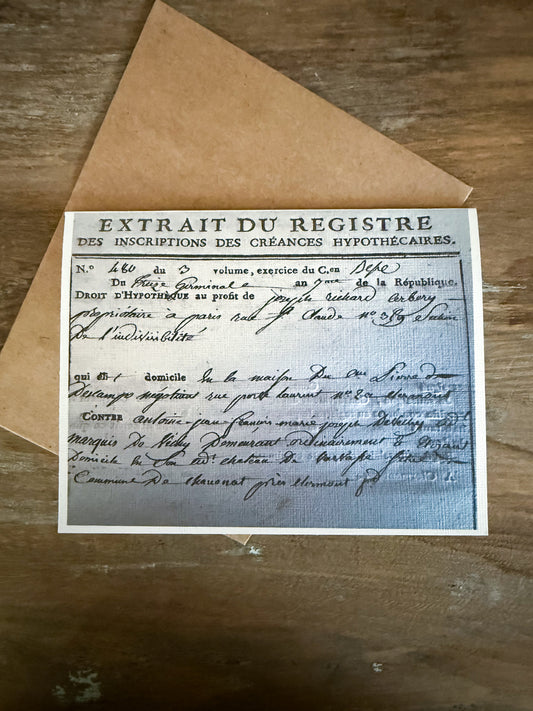 EXTRAIT DU REGISTRE
DES INSCRIPTIONS DES CRÉANCES HYPOTHÉCAIRES.
N.o 480 du 3 volume, exercice du C.en
Du Germinal an 7me de la République.
DROIT D'HYPOTHÈQUE au profit de joseph richard
propriétaire à paris rue St Claude no
De l'indivisibilité
qui domicile En la maison Du Cen Pierre
Descamps negotiant rue port laurent no
CONTRE antoine jean françois marie joseph
marquis De Demeurant ordinairement
Domicile En Son dt chateau De
Commune De chauonat près Clermont